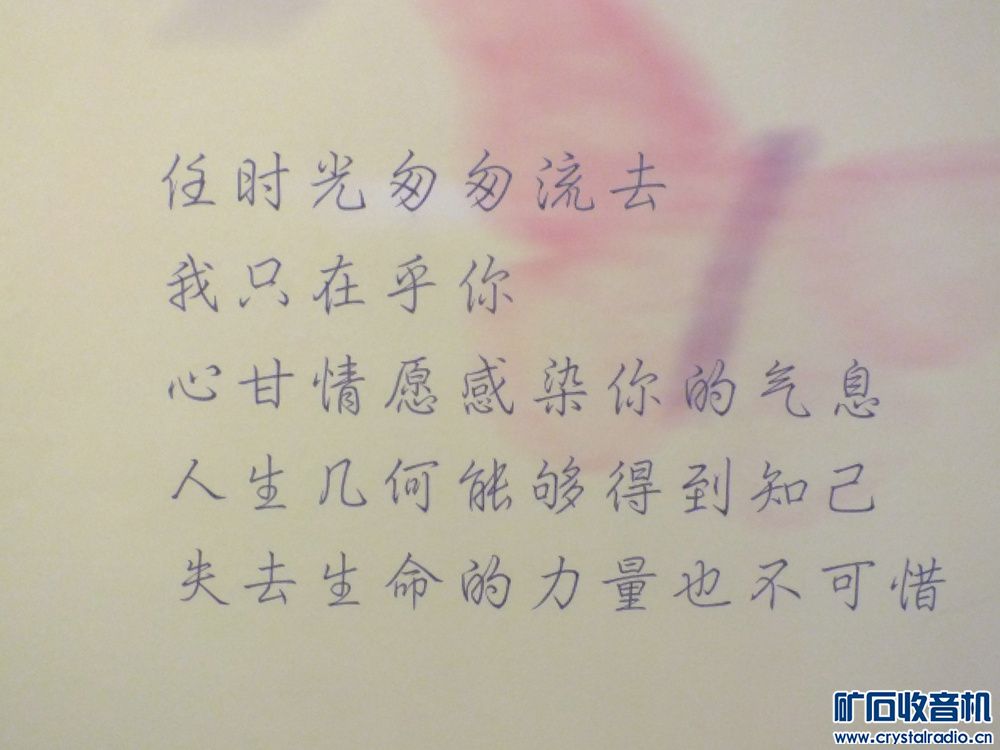 任时光匆匆流去
我只在乎你
心甘情愿感染你的气息
人生几何能够得到知己
失去生命的力量也不可惜
矿石收音机
www.crystalradio.cn